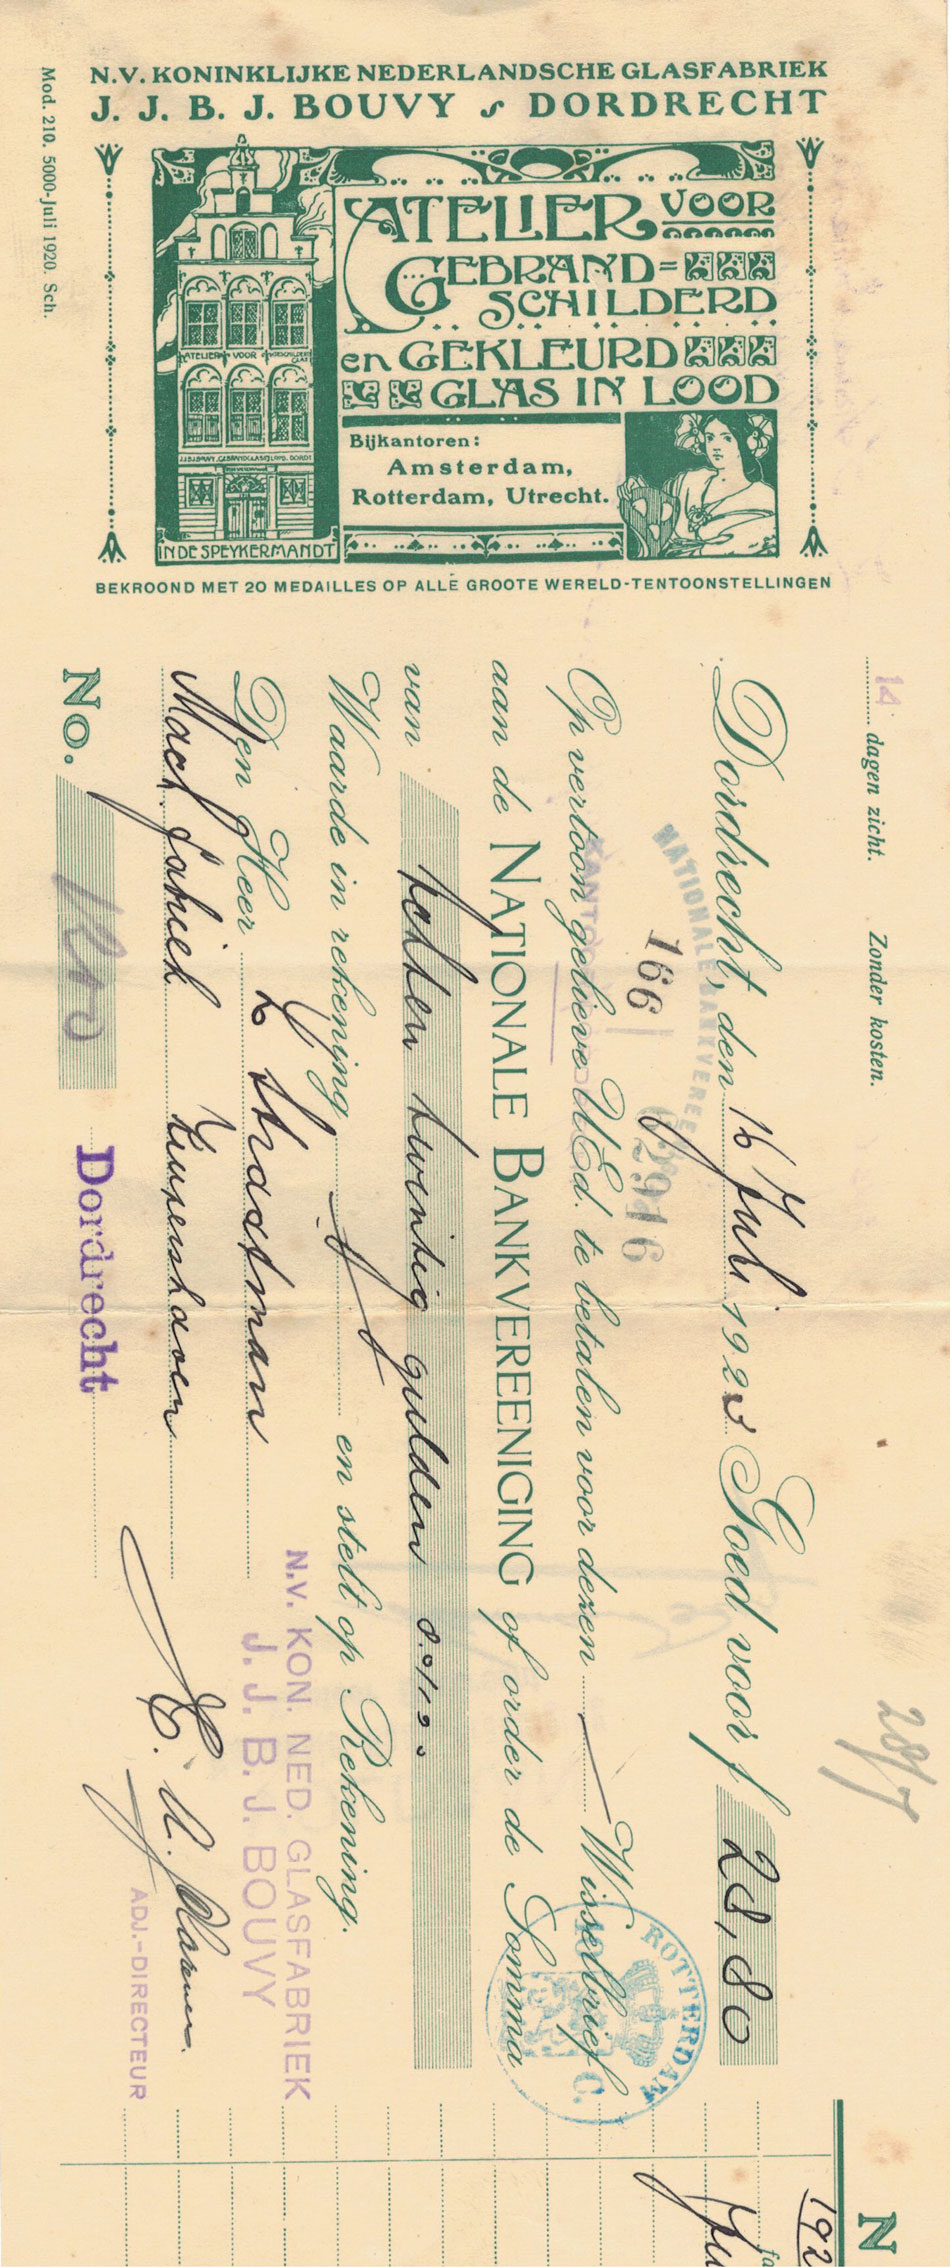 N.V. KONINKLIJKE NEDERLANDSCHE GLASFABRIEK
J. J. B. J. BOUVY DORDRECHT
Mod. 210. 5000-Juli 1920. Sch.
ATELIER VOOR
GEBRAND=
SCHILDERD
en GEKLEURD
GLAS IN LOOD
ATELIER VOOR
Bijkantoren:
Amsterdam,
Rotterdam, Utrecht.
IN DE SPEYKERMANDT
BEKROOND MET 20 MEDAILLES OP ALLE GROOTE WERELD-TENTOONSTELLINGEN
14 dagen zicht. Zonder kosten.
28/7
Dordrecht, den 16 Juli 1923 Goed voor f 28,80
NATIONALE BANKVEREE
166
62916
Op vertoon gelieve UEd. te betalen voor dezen Wisselbrief
aan de NATIONALE BANKVEREENIGING of order de Somma
van Achten twintig gulden 80/100
Waarde in rekening en stelt op Rekening.
Den Heer L Stradman
Mach. fabriek
No.
Dordrecht
ROTTERDAM
10 C.
N.V. KON. NED. GLASFABRIEK
J. J. B. J. BOUVY
ADJ.-DIRECTEUR
N
192